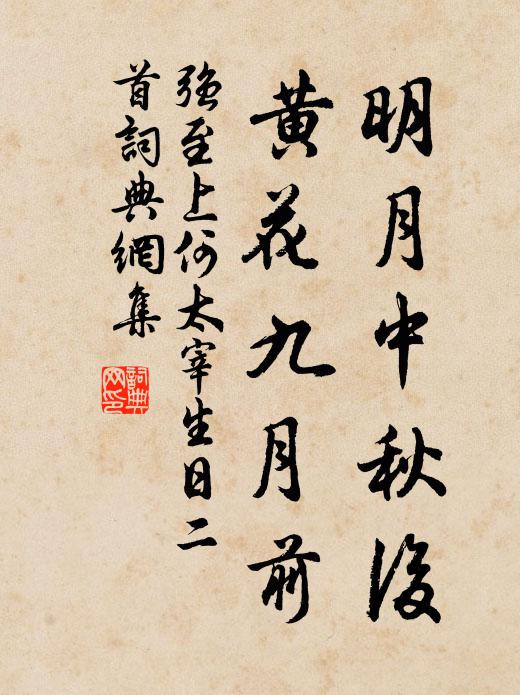 明月中秋後
黃花九月前
強至上何太宰生日二
首詞典網集
詞典
网印